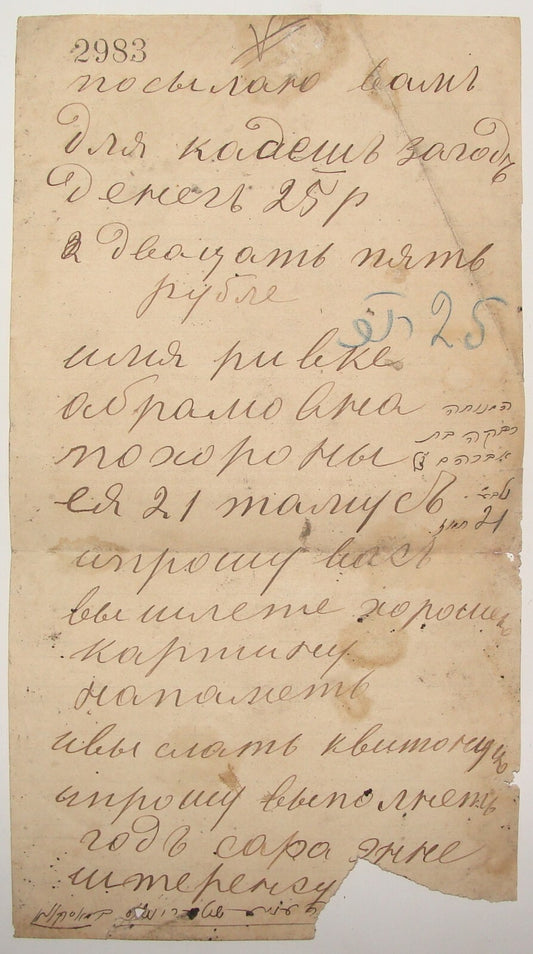 2983
посылаю вамъ
для кадешъ загодъ
денегъ 25 р
двацать пять
рубле
רו״כ 25
имя ривке
абрамовна
похороны
המנוחה
רבקה בת
אברהם
ея 21 тамусъ
21 תמוז
ипрошу васъ
вышлете хорошею
картину
напаметь
ивыслать квитонцию
ипрошу выполнеть
годъ сара энне
штеренсу